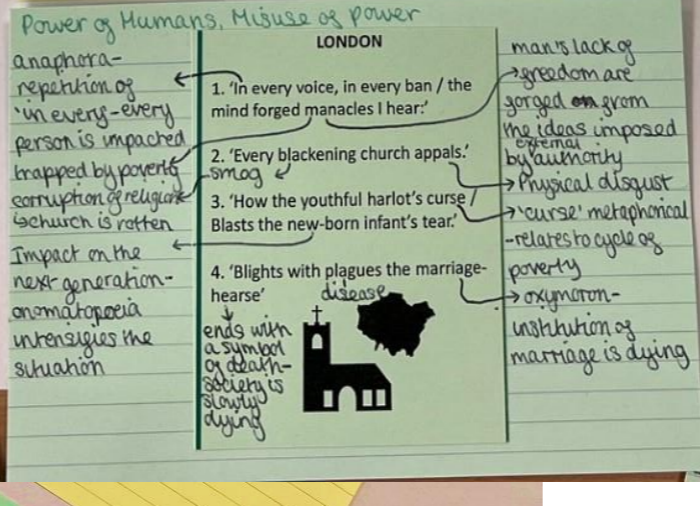 Power of Humans, Misuse of power
anaphora-
repetition of
'in every-every
person is impacted
trapped by poverty
corruption of religion
↳church is rotten
Impact on the
next generation-
onomatopoeia
intensifies the
situation
LONDON
1. 'In every voice, in every ban / the
mind forged manacles I hear:'
2. 'Every blackening church appals.'
smog
3. 'How the youthful harlot's curse /
Blasts the new-born infant's tear.'
4. 'Blights with plagues the marriage-
hearse'
disease
ends with
a symbol
of death-
society is
slowly
dying
man's lack of
freedom are
forged from
the ideas imposed
external
by authority
Physical disgust
'curse' metaphorical
-relates to cycle of
poverty
oxymoron-
institution of
marriage is dying